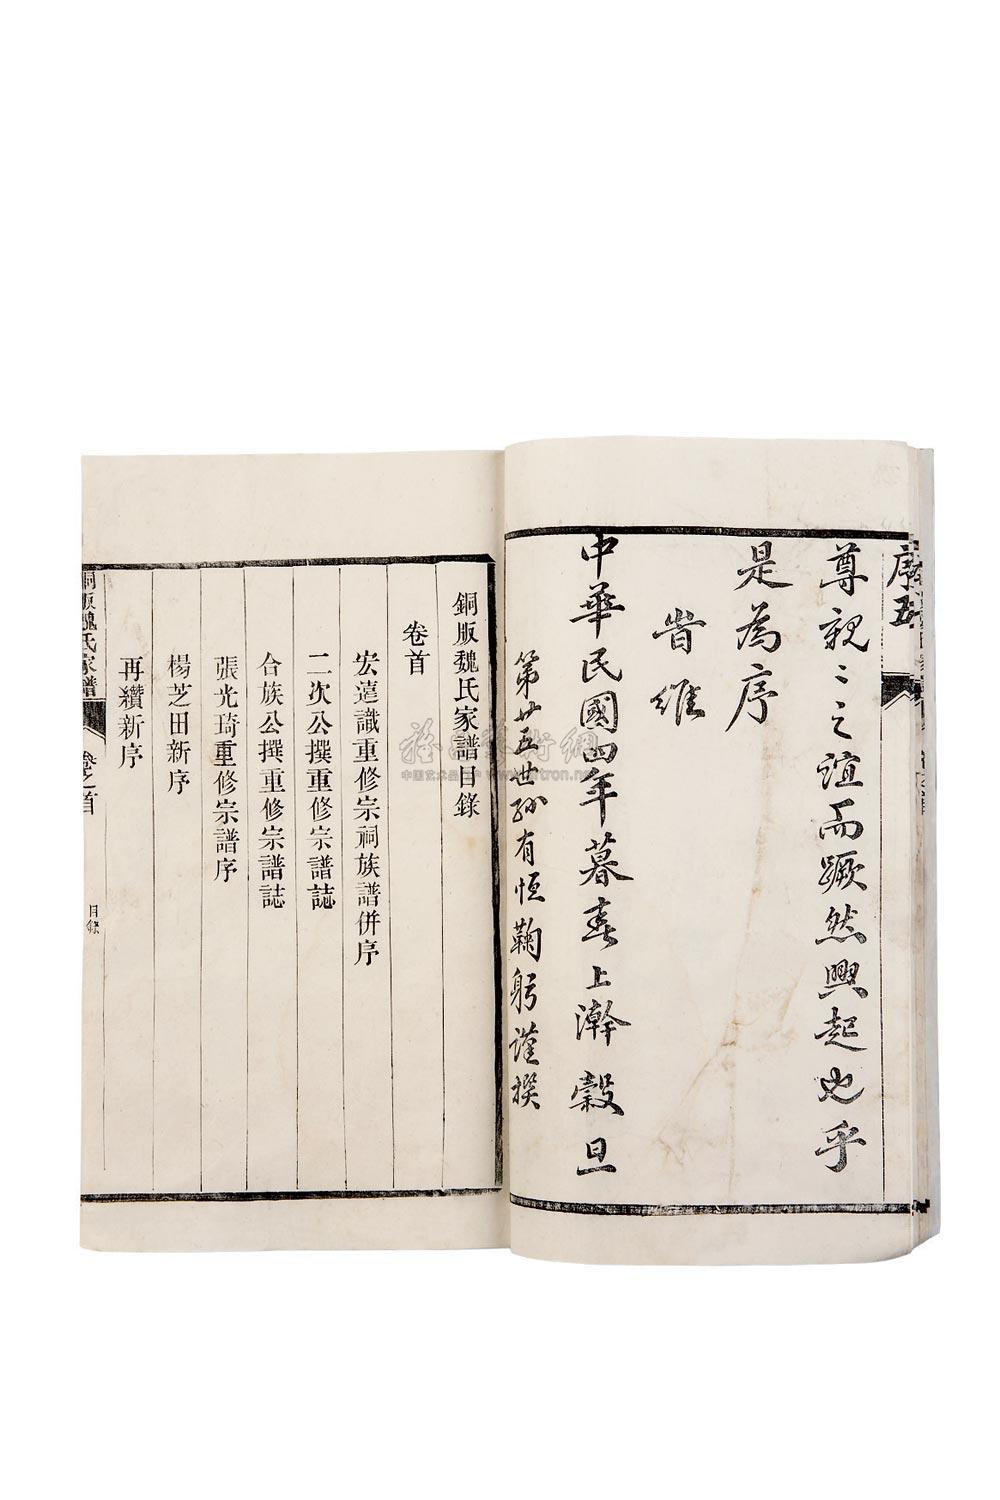 序五
尊親〻之誼而蹶然興起也乎
是為序
旹維
中華民國四年暮春上澣穀旦
第廿五世孫有恒鞠躬謹撰
銅版魏氏家譜目錄
卷首
宏遠識重修宗祠族譜併序
二次公撰重修宗譜誌
合族公撰重修宗譜誌
張光琦重修宗譜序
楊芝田新序
再續新序
銅版魏氏家譜
卷之首
目錄